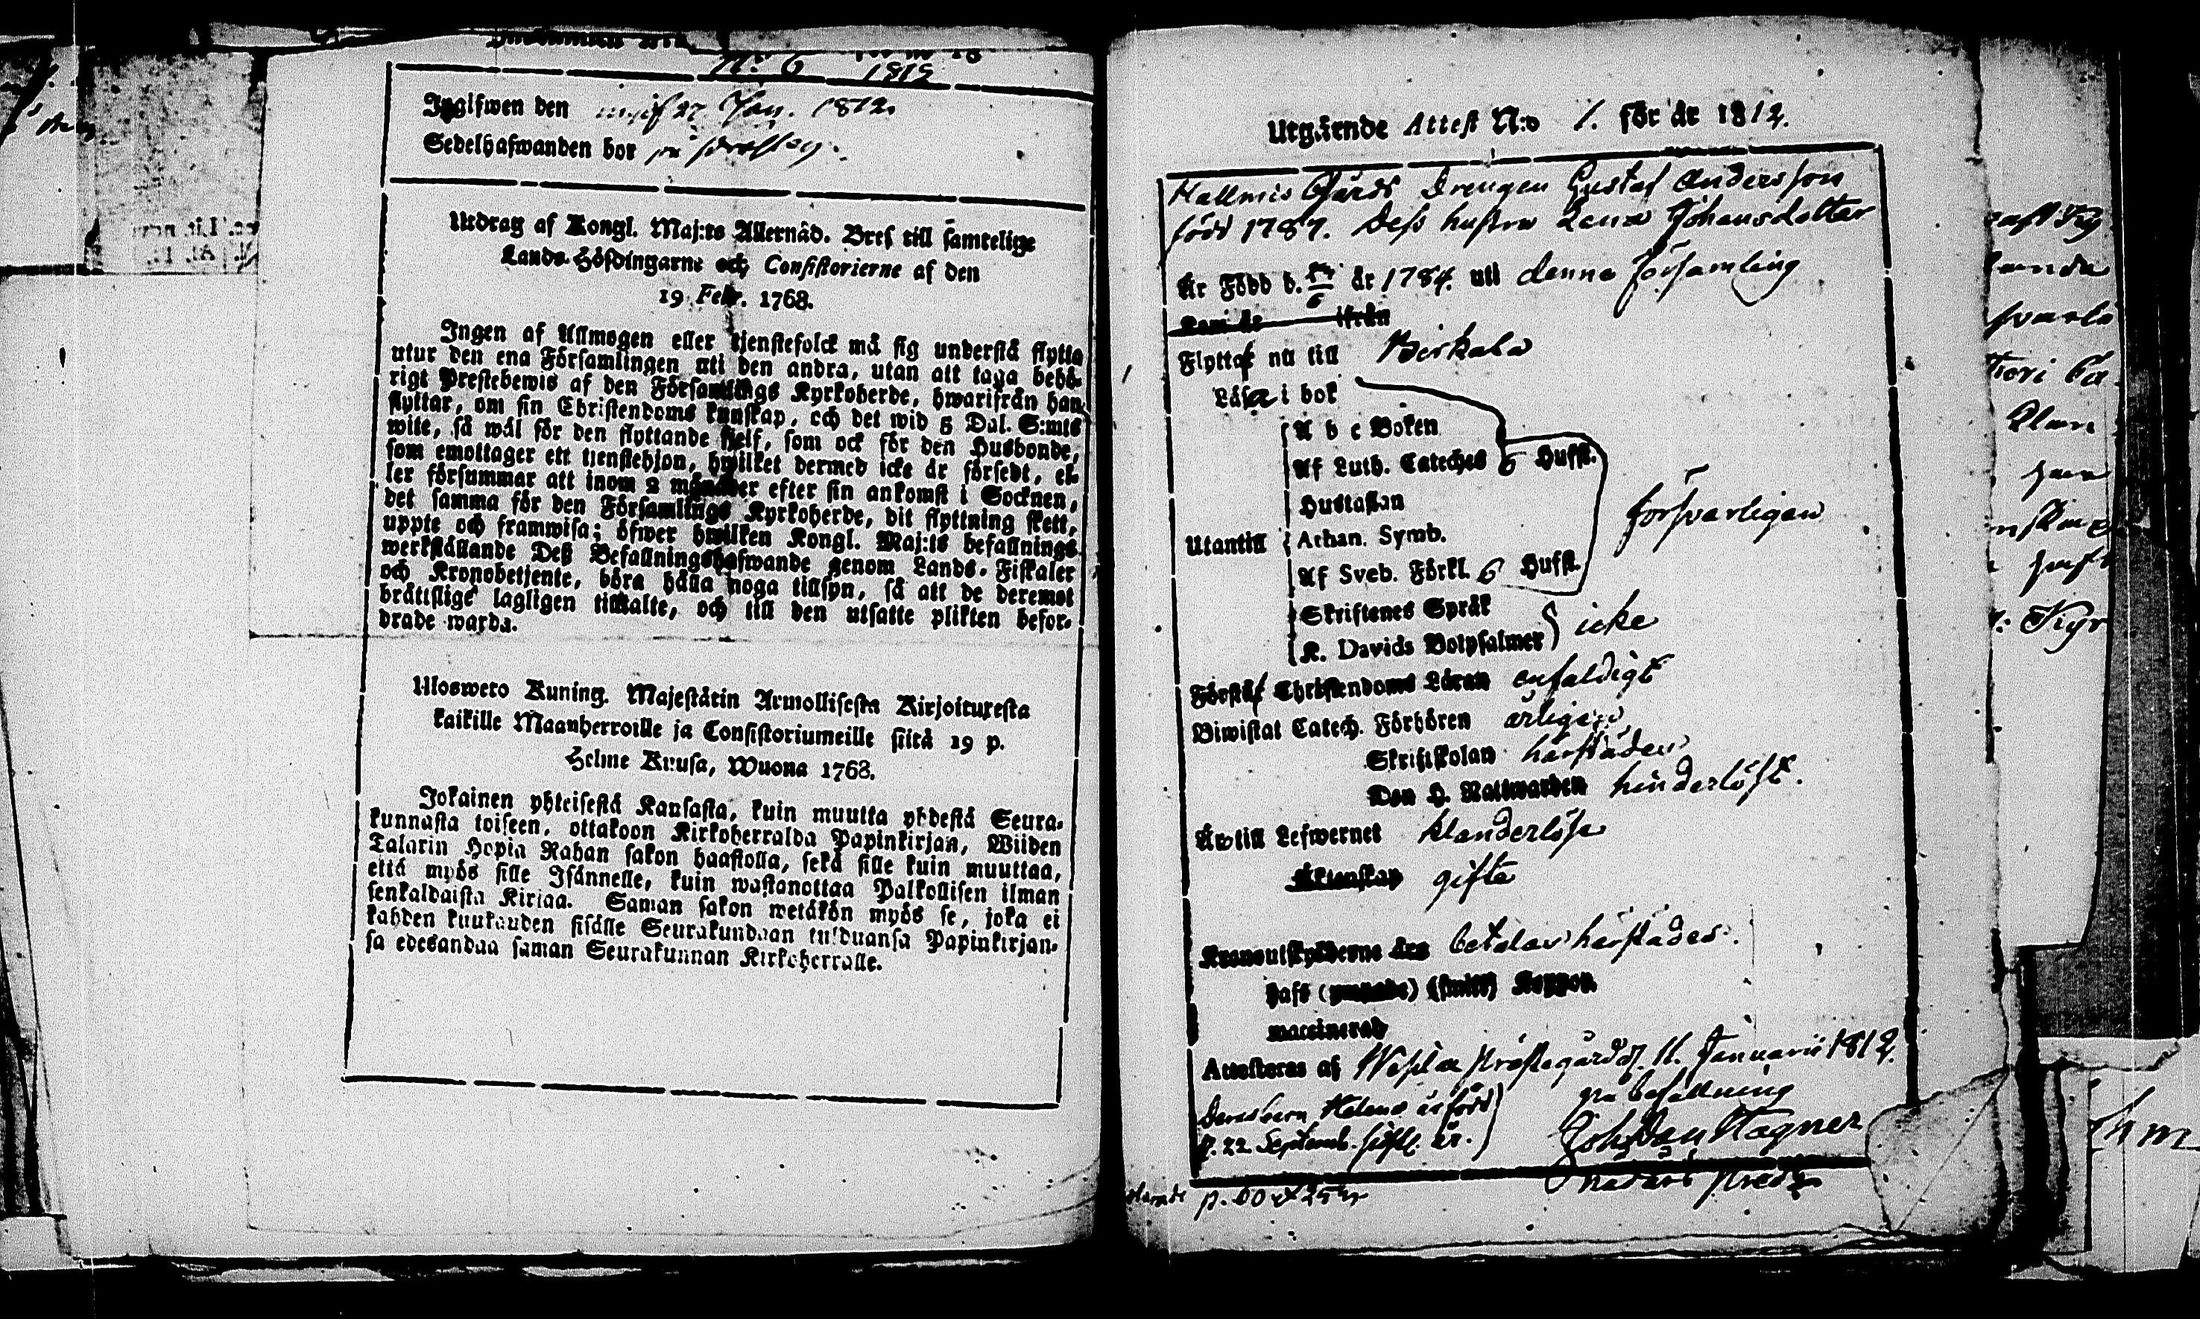 N:o 6 1812
Ingifwen den 27 Jan. 1812.
Sedelhafwanden bor på
Utdrag af Kongl. Maj:ts Allernåd. Bref till samtelige
Lands-Höfdingarne och Consistorierne af den
19 Febr. 1768.
Ingen af Allmogen eller tjenstefolck må sig understå flytta
utur den ena Församlingen uti den andra, utan att taga behö-
rigt Prestebewis af den Församlings Kyrkoherde, hwarifrån han
flyttar, om sin Christendoms kunskap, och det wid 5 Dal. S:mts
wite, så wäl för den flyttande sjelf, som ock för den Husbonde,
som emottager ett tjenstehjon, hwilket dermed icke är försedt, el-
ler försummar att inom 2 månader efter sin ankomst i Socknen,
det samma för den Församlings Kyrkoherde, dit flyttning skett,
uppte och framwisa; öfwer hwilken Kongl. Maj:ts befallnings
werkställande Deß Befallningshafwande genom Lands-Fiskaler
och Kronobetjente, böra hålla noga tillsyn, så att de deremot
bråttslige lagligen tilltalte, och till den utsatte plikten befor-
drade warda.
Ulosweto Kuning. Majestätin Armollisesta Kirjoituxesta
kaikille Maanherroille ja Consistoriumeille siitä 19 p.
Helme Kuusa, Wuona 1768.
Jokainen yhteisestä Kansasta, kuin muutta yhdestä Seura-
kunnasta toiseen, ottakoon Kirkoherralda Papinkirjan, Wiiden
Talarin Hopia Rahan sakon haastolla, sekä sille kuin muuttaa,
että myös sille Isännelle, kuin wastanottaa Palkollisen ilman
senkaldaista Kirjaa. Saman sakon wetäkön myös se, joka ei
kahden kuukauden sisälle Seurakundaan tulduansa Papinkirjan-
sa edesandaa saman Seurakunnan Kirkoherralle.
Utgårnde Attest N:o 1. för år 1812.
Gårds Drengen Gustaf Andersson
född 1787. Deß hustru Lena Johansdotter
Är Född d. 24/6 år 1784. uti denna församling
Kom år ifrån
Flyttar nu till Birkala
Läsa i bok
A b c Boken
Af Luth. Cateches 6 Hufst.
Hustaflan
försvarligen
Utantill Athan. Symb.
Af Sveb. Förkl. 6 Hufst.
Skriftenes Språk
icke
K. Davids Botpsalmer
Förstår Christendoms Läran enfaldigt
Biwistat Catech. Förhören årligen
Skriftskolan härstädes
Den H. Nattwarden hinderlöst.
Är till Lefwernet klanderlöse
Äktenskap gifte
Kronoutskylderne äro betalar härstädes.
haft (smitt) Koppor.
vaccinerad
Attesteras af prästegård d. 11. Januarii 1812.
på befallning
Deras barn Helena är född
d. 22 Septemb. sistl. år.
Joh. Dan. Wagner
p. 60